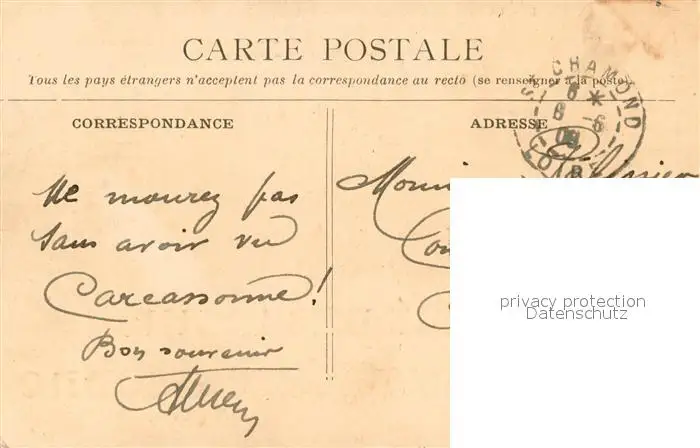 CARTE POSTALE
Tous les pays étrangers n'acceptent pas la correspondance au recto (se renseigner à la poste
CORRESPONDANCE
ADRESSE
CHAMOND
6 *
6 -6
09
LOIRE
Ne mourez pas
sans avoir vu
Carcassonne!
Bon souvenir
Monsieur
privacy protection
Datenschutz